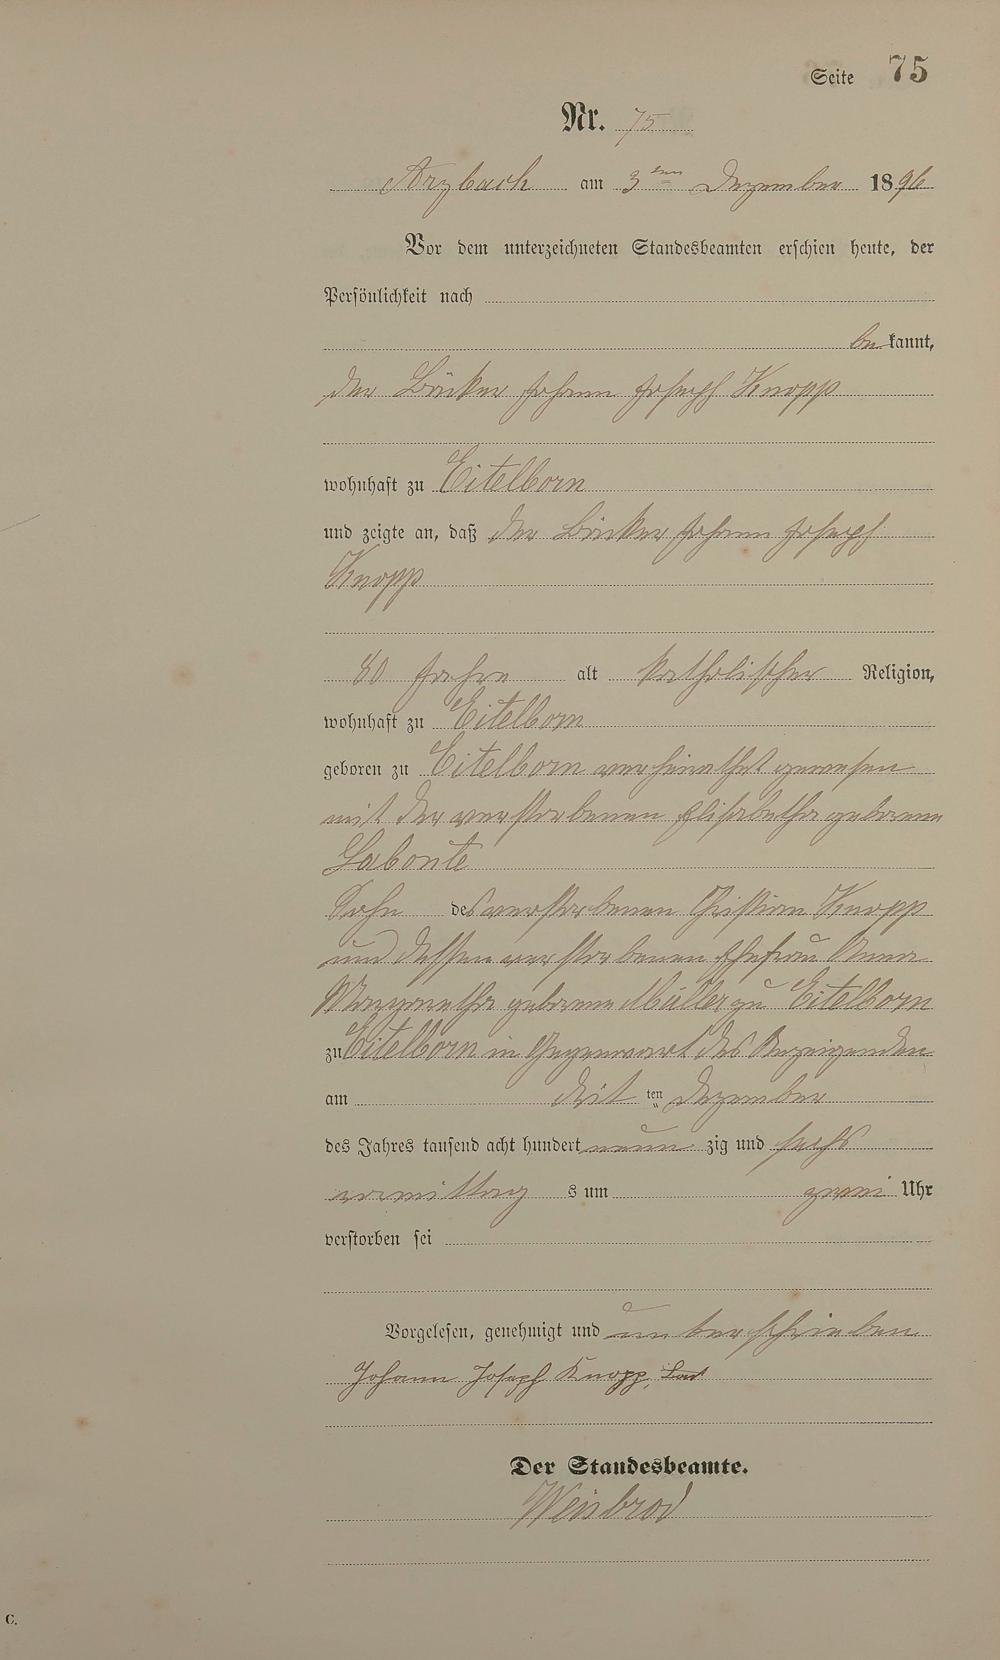 Seite 75
Nr. 75
Arzbach am 3ten Dezember 1896
Vor dem unterzeichneten Standesbeamten erschien heute, der
Persönlichkeit nach
bekannt,
der Bäcker Johann Joseph Knopp
wohnhaft zu Eitelborn
und zeigte an, daß der Bäcker Johann Joseph
Knopp
80 Jahre alt katholischer Religion,
wohnhaft zu Eitelborn
geboren zu Eitelborn verheirathet gewesen
mit der verstorbenen Elisabetha geborene
Labonte
Sohn des verstorbenen Christian Knopp
und dessen verstorbenen Ehefrau Anna
Margaretha geborene Müller zu Eitelborn
zu Eitelborn in Gegenwart des Anzeigenden
am ten Dezember
des Jahres tausend acht hundert neun zig und sechs
vormittag s um zwei Uhr
verstorben sei
Vorgelesen, genehmigt und unterschrieben
Johann Joseph Knopp,
Der Standesbeamte.
Weisbrod
C.